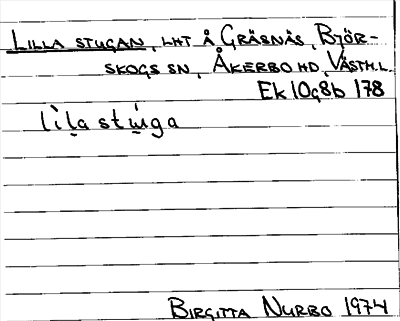 LILLA STUGAN, LHT Å GRÄSNÄS, BJÖR-
SKOGS SN, ÅKERBO HD, VÄSTM.L.
Ek 10g8b 178
lìl̥a stu̥ga
BIRGITTA NURBO 1974